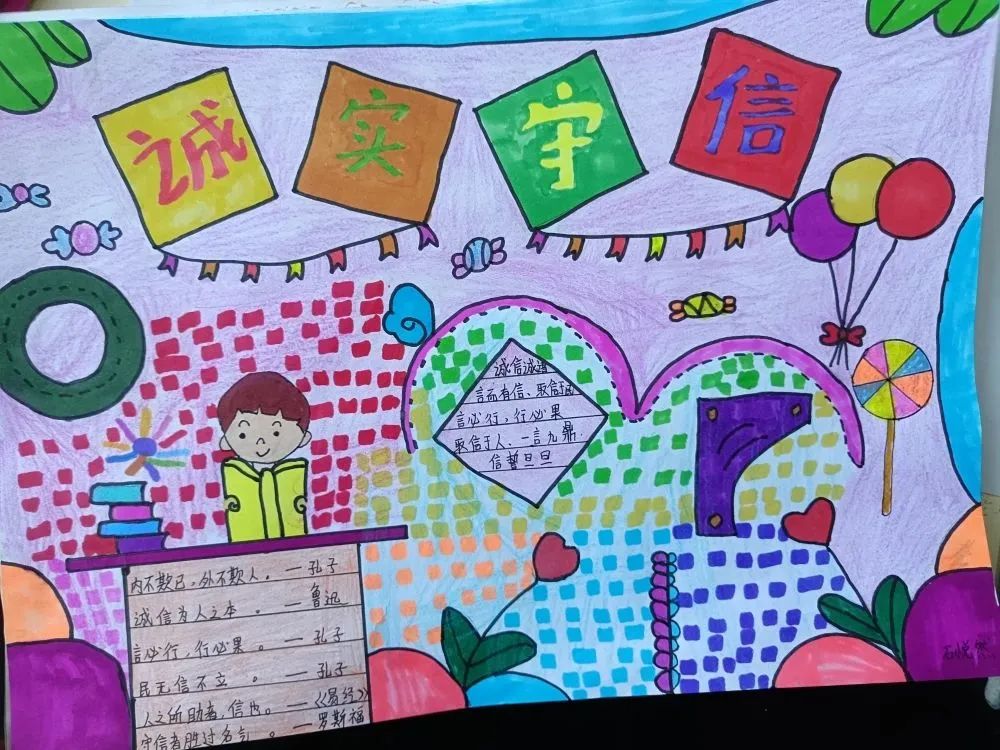 诚实守信
诚信诚道
言而有信、取信于民
言必行,行必果
取信于人、一言九鼎
信誓旦旦
内不欺己,外不欺人。— 孔子
诚信为人之本。— 鲁迅
言必行,行必果。— 孔子
民无信不立。— 孔子
人之所助者,信也。—《易经》
守信者胜过名气。— 罗斯福
石悦然